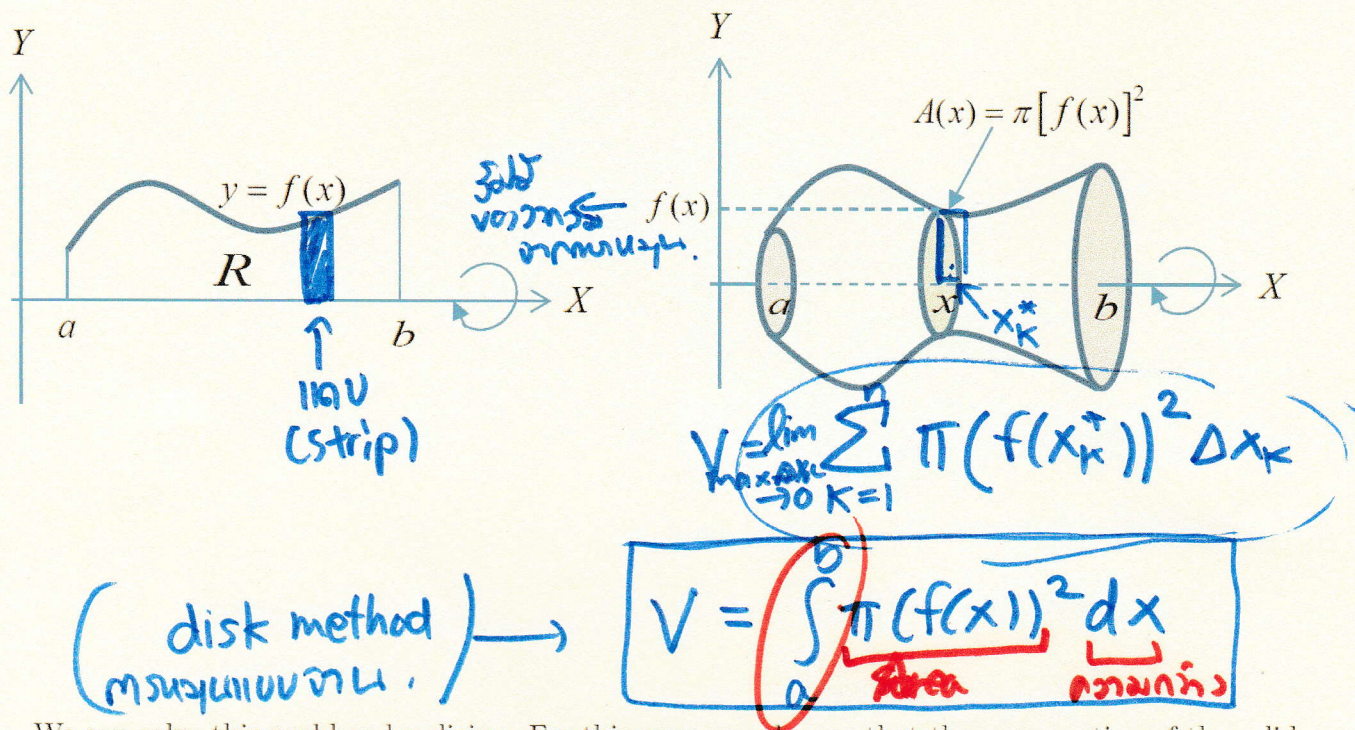 Y
y = f(x)
R
a
b
X
แถบ
(strip)
รูปตัด
ของทรงตัน
จากการหมุน.
Y
A(x) = π[f(x)]²
f(x)
a
x
b
X
x_K^*
V = lim_{max Δx_K → 0} Σ_{K=1}^{n} π(f(x_K^*))² Δx_K
(disk method
การหมุนแบบจาน.)
→
V = ∫_a^b π(f(x))² dx
area
ความกว้าง